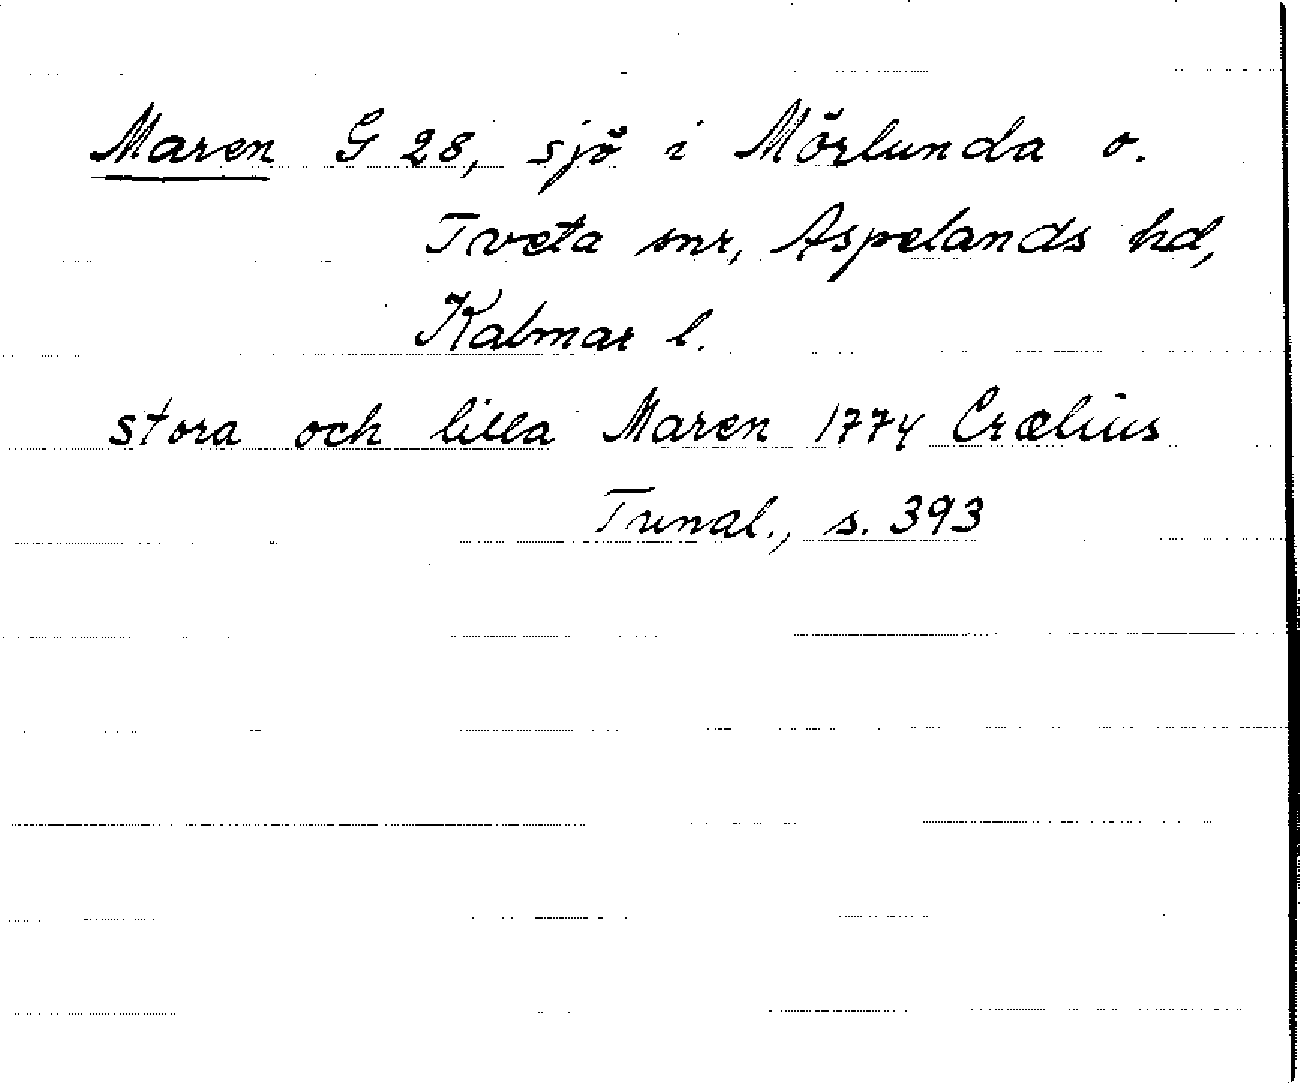 Maren G 28, sjö i Mörlunda o.
Tveta snr, Aspelands hd,
Kalmar l.
stora och lilla Maren 1774 Crælius
Tunal., s. 393